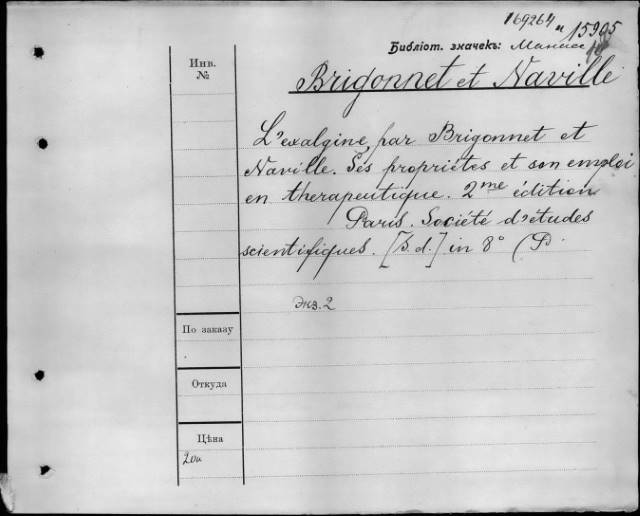 169264 и 15905
Библіот. значекъ:
Инв.
№
Brigonnet et Naville
L'exalgine, par Brigonnet et
Naville. Ses propriétés et son emploi
en therapeutique. 2me édition
Paris. Société d'études
scientifiques. [S. d.] in 8° (P.
Экз. 2
По заказу
Откуда
Цѣна